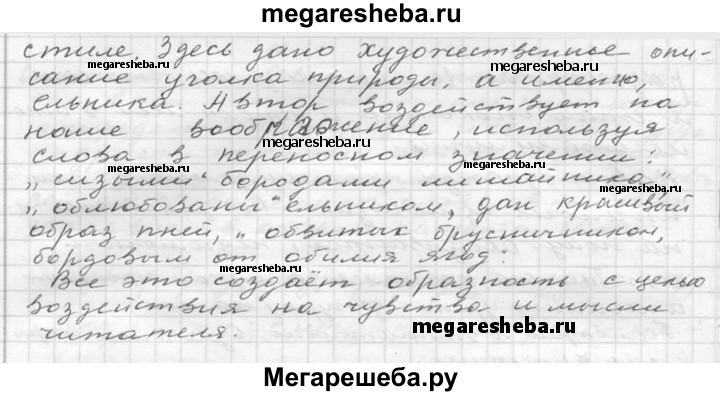 megaresheba.ru
стиле. Здесь дано художественное опи-
megaresheba.ru megaresheba.ru
сание уголка природы, а именно,
ельника. Автор воздействует на
наше воображение, используя
megaresheba.ru
слова в переносном значении:
„сизыми" бородами лишайника"
megaresheba.ru
„облюбованы" ельником, дан красивый
образ пней, „обвитых брусничником,
бордовым от обилия ягод".
megaresheba.ru
Все это создаёт образность с целью
воздействия на чувства и мысли
читателя.
megaresheba.ru
Мегарешеба.ру